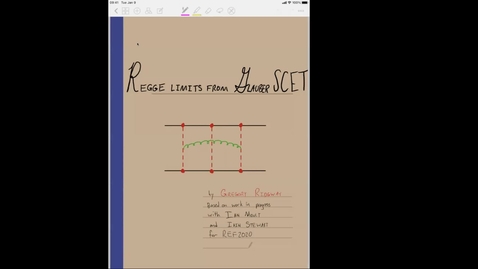 REGGE LIMITS FROM GLAUBER SCET
by GREGORY RIDGWAY
Based on work in progress
with IAN MOULT
and IAIN STEWART
for REF2020